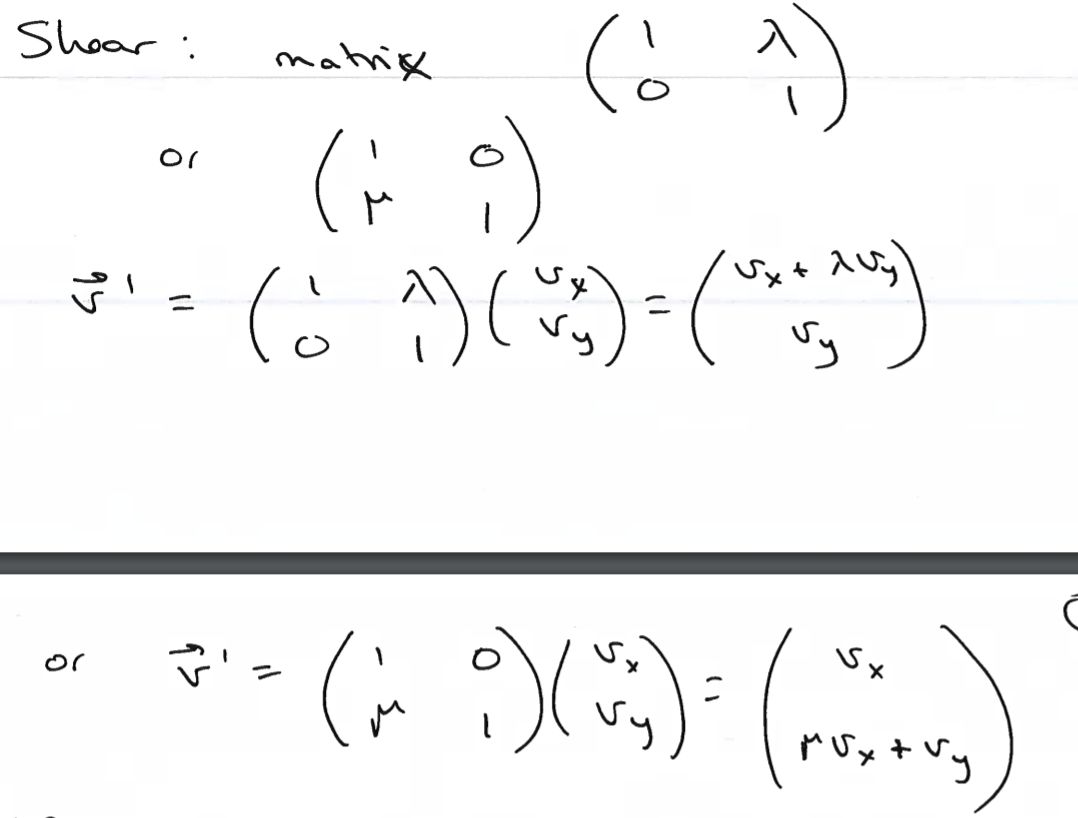 Shear : matrix ( 1 λ ; 0 1 )
or ( 1 0 ; μ 1 )
v⃗ ' = ( 1 λ ; 0 1 ) ( v_x ; v_y ) = ( v_x + λ v_y ; v_y )
or v⃗ ' = ( 1 0 ; μ 1 ) ( v_x ; v_y ) = ( v_x ; μ v_x + v_y )